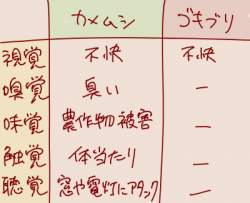 カメムシ ゴキブリ
視覚 不快 不快
嗅覚 臭い ー
味覚 農作物被害 ー
触覚 体当たり ー
聴覚 窓や電灯にアタック ー